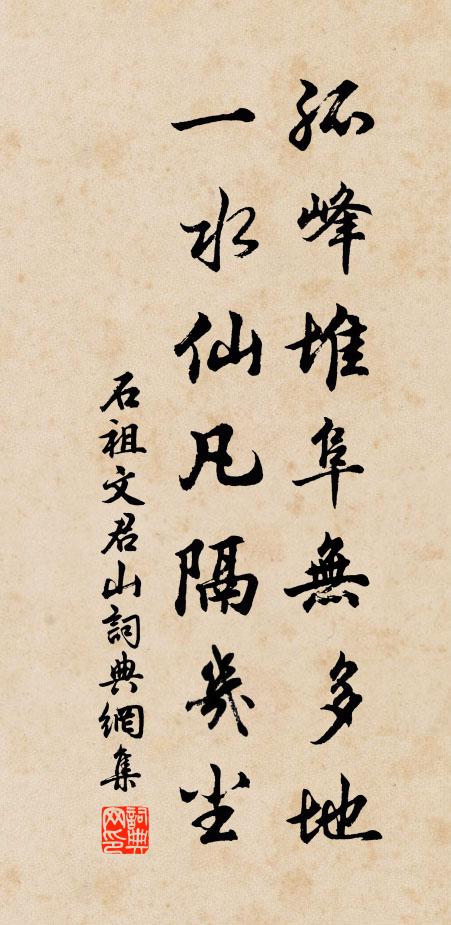 孤峰堆阜無多地
一水仙凡隔幾尘
石祖文君山詞典網集
詞典网印